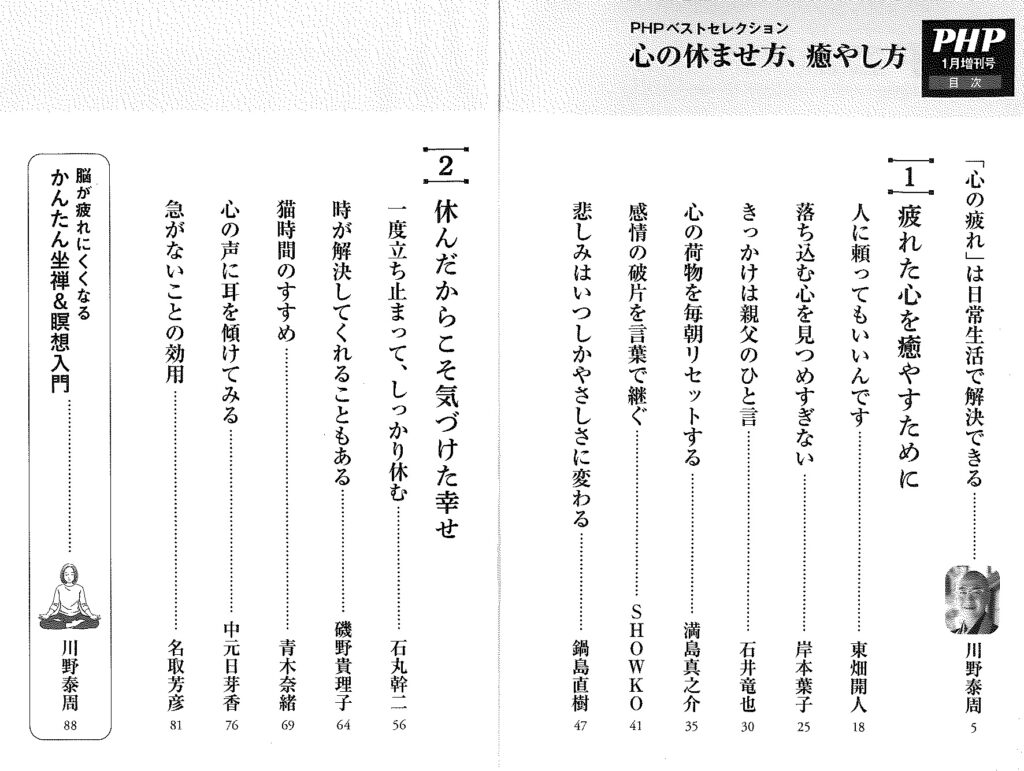 PHP
1月増刊号
目次
PHPベストセレクション
心の休ませ方、癒やし方
「心の疲れ」は日常生活で解決できる 川野泰周 5
1 疲れた心を癒やすために
人に頼ってもいいんです 東畑開人 18
落ち込む心を見つめすぎない 岸本葉子 25
きっかけは親父のひと言 石井竜也 30
心の荷物を毎朝リセットする 満島真之介 35
感情の破片を言葉で継ぐ SHOWKO 41
悲しみはいつしかやさしさに変わる 鍋島直樹 47
2 休んだからこそ気づけた幸せ
一度立ち止まって、しっかり休む 石丸幹二 56
時が解決してくれることもある 磯野貴理子 64
猫時間のすすめ 青木奈緒 69
心の声に耳を傾けてみる 中元日芽香 76
急がないことの効用 名取芳彦 81
脳が疲れにくくなる
かんたん坐禅&瞑想入門 川野泰周 88